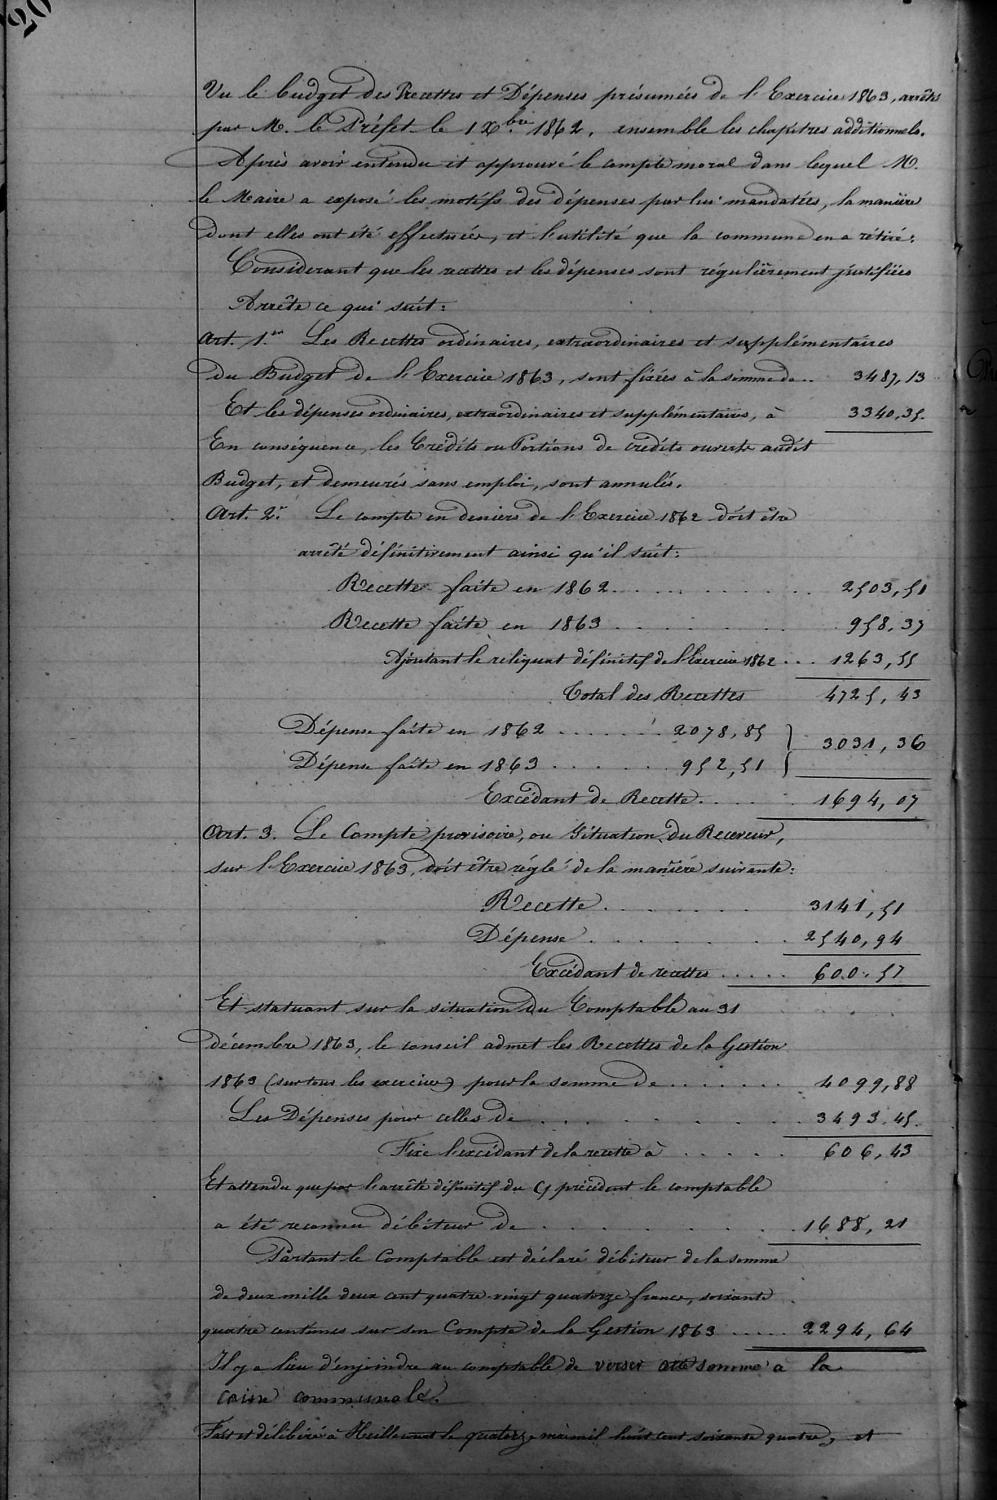 20
Vu le budget des Recettes et Dépenses présumées de l'Exercice 1863, arrêtés
par M. le Préfet le 1 Xbre 1862, ensemble les chapitres additionnels.
Après avoir entendu et approuvé le compte moral dans lequel M.
le Maire a exposé les motifs des dépenses par lui mandatées, la manière
dont elles ont été effectuées, et l'utilité que la commune en a rétiré:
Considérant que les recettes et les dépenses sont régulièrement justifiées
Arrête ce qui suit:
Art. 1.er Les Recettes ordinaires, extraordinaires et supplémentaires
du Budget de l'Exercice 1863, sont fixées à la somme de .. 3487,13
Et les dépenses ordinaires, extraordinaires et supplémentaires, à 3340,35.
En conséquence, les Crédits ou Portions de crédits ouverts audit
Budget, et demeurés sans emploi, sont annulés.
Art. 2. Le compte en deniers de l'Exercice 1862 doit être
arrêté définitivement ainsi qu'il suit:
Recette faite en 1862 . . . . . . . . . 2503,51
Recette faite en 1863 . . . . . . 958,37
Ajoutant le reliquat définitif de l'Exercice 1862 ... 1263,55
Total des Recettes 4725,43
Dépense faite en 1862 . . . . . . 2078,85 } 3031,36
Dépense faite en 1863 . . . . . . 952,51 }
Excédant de Recette . . . . 1694,07
Art. 3. Le Compte provisoire, ou Situation du Receveur,
sur l'Exercice 1863, doit être réglé de la manière suivante:
Recette . . . . . . . 3141,51
Dépense . . . . . . . 2540,94
Excédant de recettes ..... 600,57
Et statuant sur la situation du Comptable au 31
décembre 1863, le conseil admet les Recettes de la Gestion
1863 (sur tous les exercices) pour la somme de ....... 4099,88
Les Dépenses pour celles de . . . . . . . . 3493,45.
Fixe l'excédant de la recette à . . . . . 606,43
Et attendu que par l'arrêté définitif du précédent le comptable
a été reconnu débiteur de . . . . . . . . . 1688,21
Partant le Comptable est déclaré débiteur de la somme
de deux mille deux cent quatre-vingt quatorze francs, soixante
quatre centimes sur son Compte de la Gestion 1863 ..... 2294,64
Il y a lieu d'enjoindre au comptable de verser cette somme à la
caisse communale.
Fait et délibéré à le quatorze mai mil huit cent soixante quatre, et